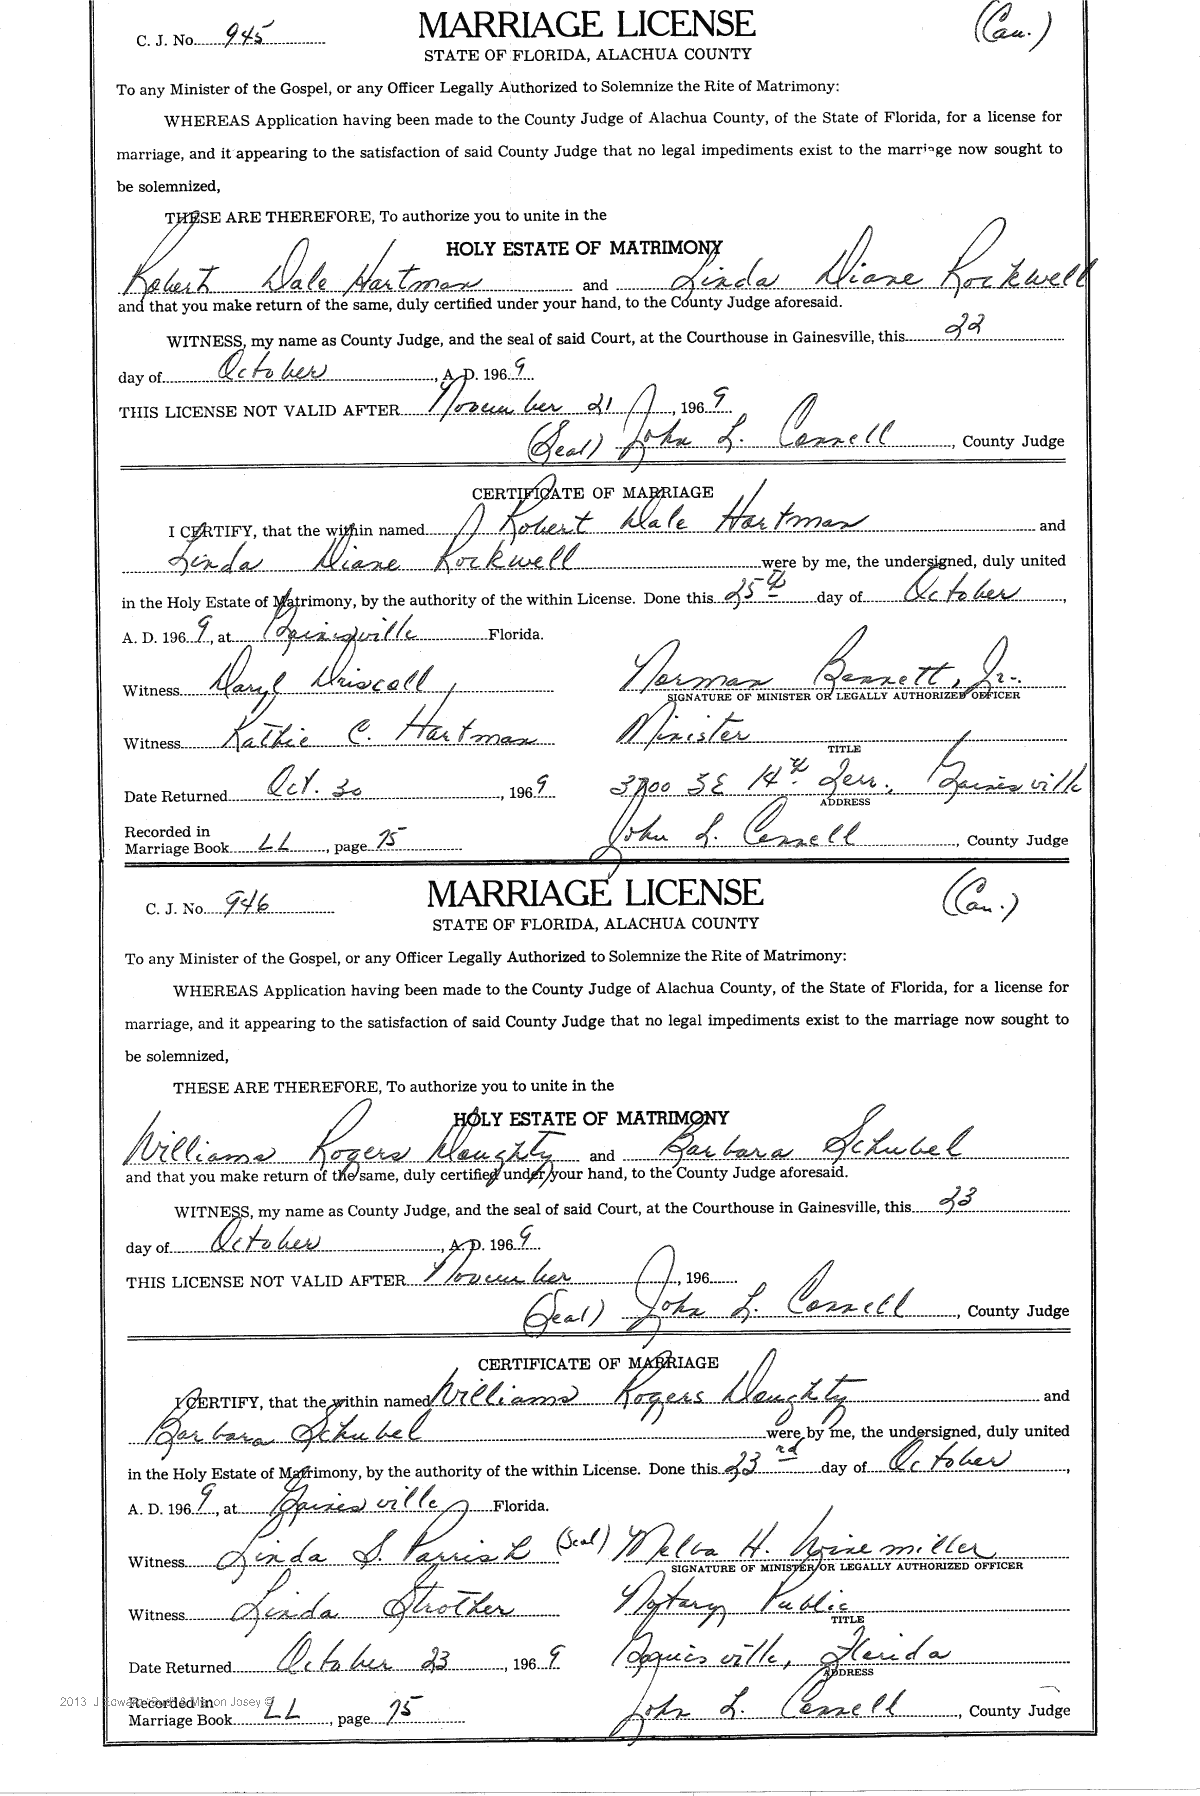 C. J. No. 945 MARRIAGE LICENSE (Cau.)
STATE OF FLORIDA, ALACHUA COUNTY
To any Minister of the Gospel, or any Officer Legally Authorized to Solemnize the Rite of Matrimony:
WHEREAS Application having been made to the County Judge of Alachua County, of the State of Florida, for a license for
marriage, and it appearing to the satisfaction of said County Judge that no legal impediments exist to the marriage now sought to
be solemnized,
THESE ARE THEREFORE, To authorize you to unite in the
HOLY ESTATE OF MATRIMONY
Robert Dale Hartman and Linda Diane Rockwell
and that you make return of the same, duly certified under your hand, to the County Judge aforesaid.
WITNESS, my name as County Judge, and the seal of said Court, at the Courthouse in Gainesville, this 22
day of October, A. D. 1969.
THIS LICENSE NOT VALID AFTER November 21, 1969
(Seal) John L. Connell, County Judge
CERTIFICATE OF MARRIAGE
I CERTIFY, that the within named Robert Dale Hartman and
Linda Diane Rockwell were by me, the undersigned, duly united
in the Holy Estate of Matrimony, by the authority of the within License. Done this 25th day of October,
A. D. 1969, at Gainesville Florida.
Witness Daryl Driscoll Norman Bennett, Jr.
SIGNATURE OF MINISTER OR LEGALLY AUTHORIZED OFFICER
Witness Kathie C. Hartman Minister
TITLE
Date Returned Oct. 30, 1969 3700 SE 14th Terr., Gainesville
ADDRESS
Recorded in
Marriage Book LL, page 75 John L. Connell, County Judge
C. J. No. 946 MARRIAGE LICENSE (Cau.)
STATE OF FLORIDA, ALACHUA COUNTY
To any Minister of the Gospel, or any Officer Legally Authorized to Solemnize the Rite of Matrimony:
WHEREAS Application having been made to the County Judge of Alachua County, of the State of Florida, for a license for
marriage, and it appearing to the satisfaction of said County Judge that no legal impediments exist to the marriage now sought to
be solemnized,
THESE ARE THEREFORE, To authorize you to unite in the
HOLY ESTATE OF MATRIMONY
Williams Rogers Doughty and Barbara Schubel
and that you make return of the same, duly certified under your hand, to the County Judge aforesaid.
WITNESS, my name as County Judge, and the seal of said Court, at the Courthouse in Gainesville, this 23
day of October, A. D. 1969.
THIS LICENSE NOT VALID AFTER November, 196
(Seal) John L. Connell, County Judge
CERTIFICATE OF MARRIAGE
I CERTIFY, that the within named Williams Rogers Doughty and
Barbara Schubel were by me, the undersigned, duly united
in the Holy Estate of Matrimony, by the authority of the within License. Done this 23rd day of October,
A. D. 1969, at Gainesville Florida.
Witness Linda S. Parrish (Seal) Melva H. Winemiller
SIGNATURE OF MINISTER OR LEGALLY AUTHORIZED OFFICER
Witness Linda Strother Notary Public
TITLE
Date Returned October 23, 1969 Gainesville, Florida
ADDRESS
Recorded in
Marriage Book LL, page 75 John L. Connell, County Judge